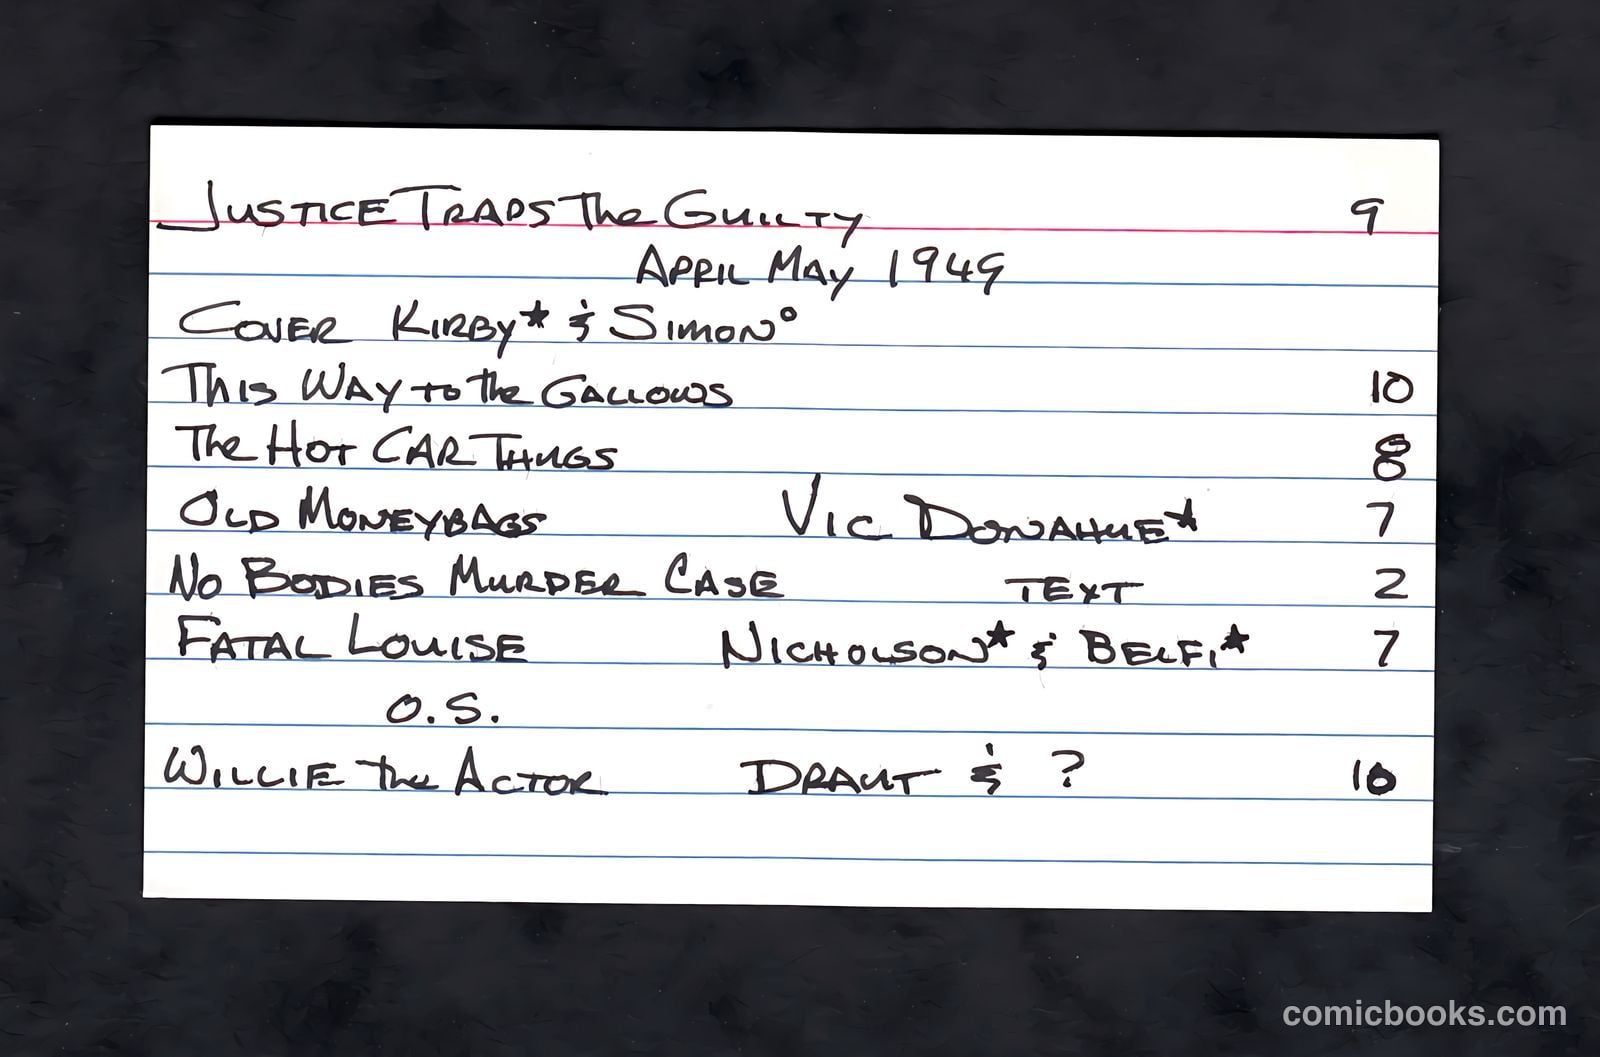 Justice Traps The Guilty 9
April May 1949
Cover Kirby★ & Simon°
This Way to the Gallows 10
The Hot Car Thugs 8
Old Moneybags Vic Donahue★ 7
No Bodies Murder Case Text 2
Fatal Louise Nicholson★ & Belfi★ 7
O.S.
Willie the Actor Draut & ? 10
comicbooks.com